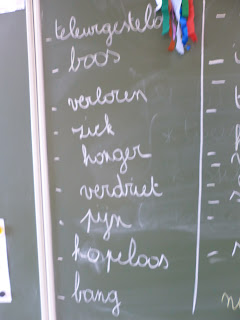 - teleurgesteld
- boos
- verloren
- ziek
- honger
- verdriet
- pijn
- hopeloos
- bang